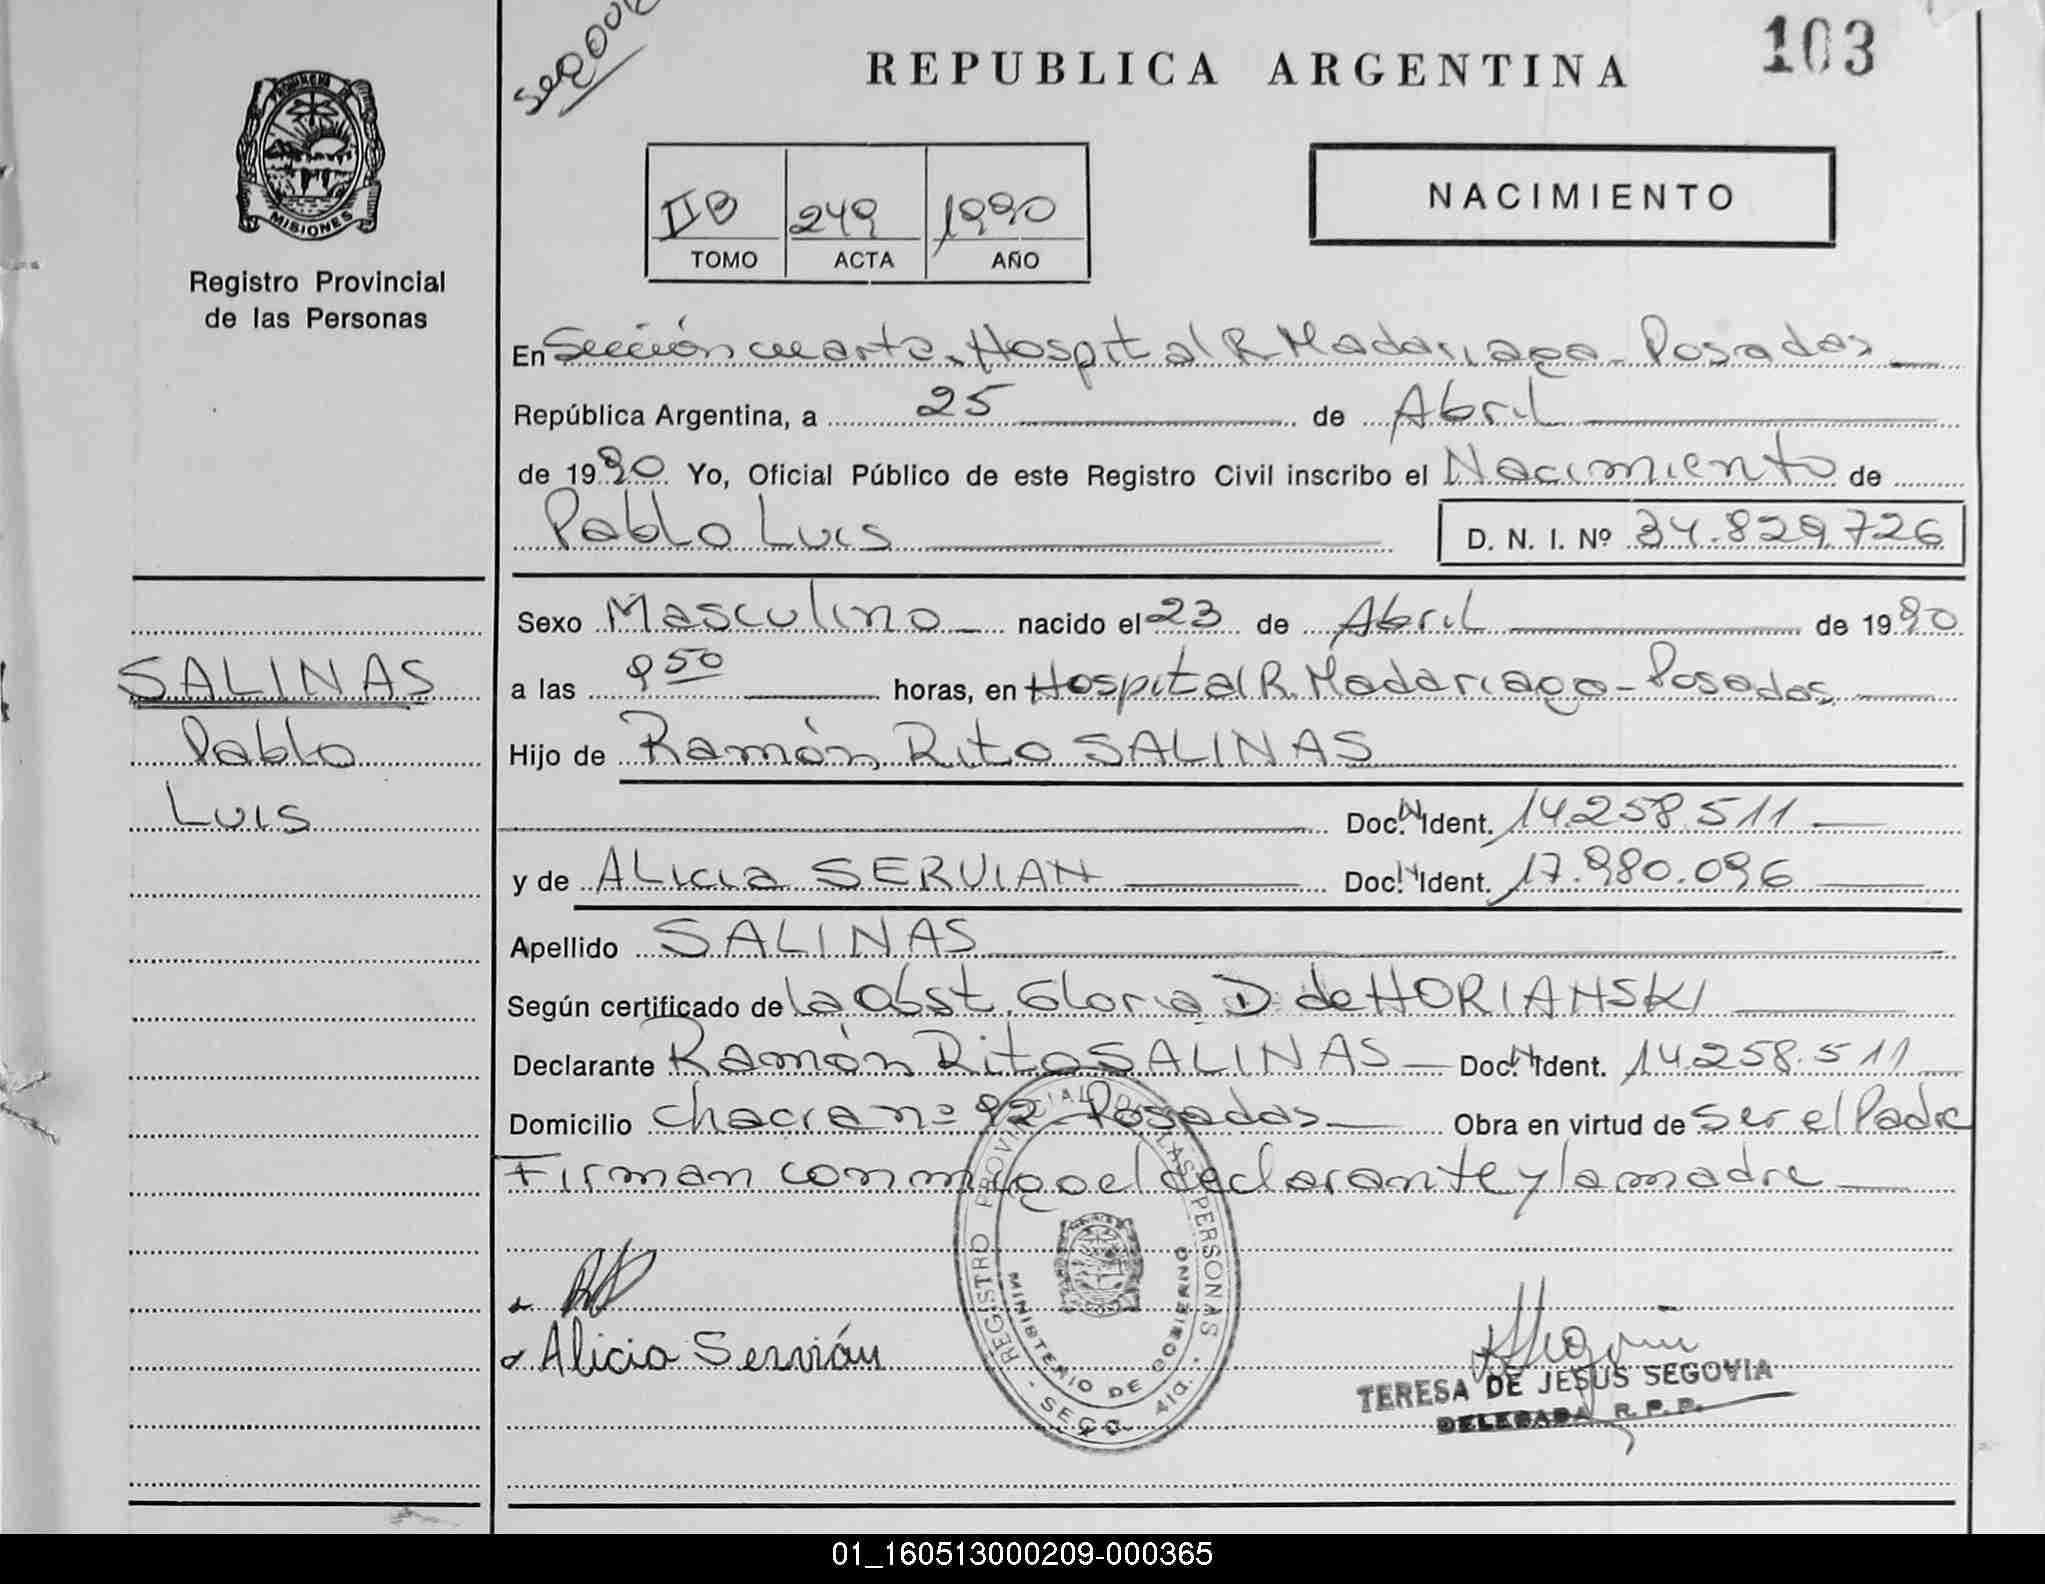 103
REPUBLICA ARGENTINA
PROVINCIA DE
MISIONES
Registro Provincial
de las Personas
IIB 249 1990
TOMO ACTA AÑO
NACIMIENTO
En Sección cuarta. Hospital R Madariaga - Posadas
República Argentina, a 25 de Abril
de 1990 Yo, Oficial Público de este Registro Civil inscribo el Nacimiento de
Pablo Luis D. N. I. Nº 34.829.726
Sexo Masculino nacido el 23 de Abril de 1990
SALINAS
Pablo
Luis
a las 9 50 horas, en Hospital R. Madariaga - Posadas
Hijo de Ramón Rito SALINAS
Doc. N Ident. 14.258.511
y de ALicia SERVIAN Doc. N Ident. 17.980.096
Apellido SALINAS
Según certificado de la Obst. Gloria D. de HORIANSKI
Declarante Ramón Rito SALINAS Doc. N Ident. 14.258.511
Domicilio chacra nº 92 - Posadas Obra en virtud de ser el Padre
Firman conmigo el declarante y la madre
Alicia Servián
REGISTRO PROVINCIAL DE LAS PERSONAS
MINISTERIO DE GOBIERNO
SECC. 4ta.
TERESA DE JESUS SEGOVIA
DELEGADA R. P. P.
01_160513000209-000365